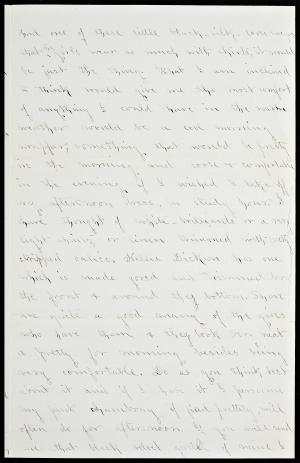 And one of these little black silk
that girls wear so much with shirts, it would
be just the thing. What I am inclined
to think would give me the most comfort
of anything I could have in the warm
weather would be a cool morning
wrapper, something that would be pretty
in the morning and cool & comfortable
in the evening if I wished to take off
my afternoon dress, in study hour. I
have thought of white brilliante or a very
light chintz or linen trimmed with
striped calico. Nellie Dickson has one
which is made gored and trimmed down
the front & around the bottom. There
are quite a good many of the girls
who have them & they look very neat
& pretty for morning besides being
very comfortable. Do as you think best
about it and if I have it I presume
my pink chambray if fixed pretty, will
often do for afternoon. If you will send
me that black of mine I